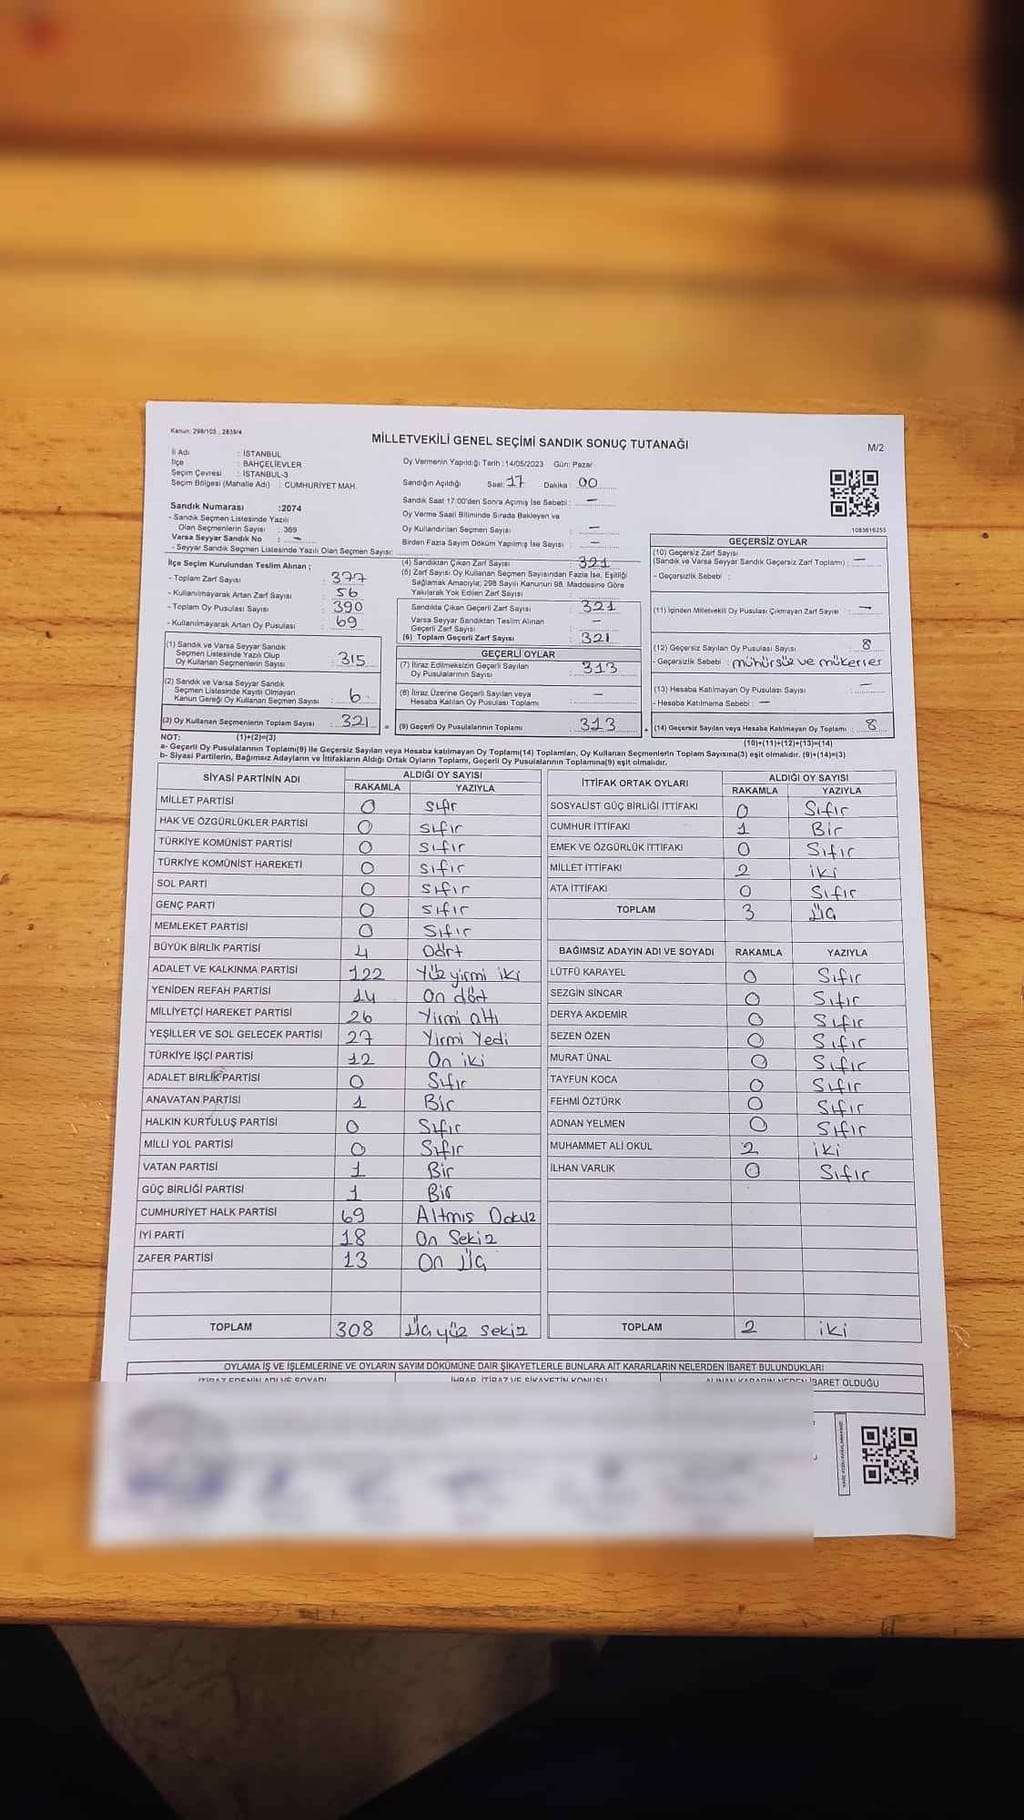 Kanun: 298/105 , 2839/4
MİLLETVEKİLİ GENEL SEÇİMİ SANDIK SONUÇ TUTANAĞI
M/2
İl Adı : İSTANBUL
İlçe : BAHÇELİEVLER
Seçim Çevresi : İSTANBUL-3
Seçim Bölgesi (Mahalle Adı) : CUMHURİYET MAH.
Oy Vermenin Yapıldığı Tarih :14/05/2023 Gün: Pazar
Sandığın Açıldığı Saat: 17 Dakika : 00
Sandık Saat 17:00'den Sonra Açımış İse Sebebi : —
Oy Verme Saati Bitiminde Sırada Bekleyen ve
Oy Kullandırılan Seçmen Sayısı : —
Birden Fazla Sayım Döküm Yapılmış İse Sayısı : —
Sandık Numarası :2074
- Sandık Seçmen Listesinde Yazılı
Olan Seçmenlerin Sayısı : 369
Varsa Seyyar Sandık No : —
- Seyyar Sandık Seçmen Listesinde Yazılı Olan Seçmen Sayısı:
İlçe Seçim Kurulundan Teslim Alınan ;
- Toplam Zarf Sayısı : 377
- Kullanılmayarak Artan Zarf Sayısı : 56
- Toplam Oy Pusulası Sayısı : 390
- Kullanılmayarak Artan Oy Pusulası : 69
(1) Sandık ve Varsa Seyyar Sandık
Seçmen Listesinde Yazılı Olup
Oy Kullanan Seçmenlerin Sayısı : 315
(2) Sandık ve Varsa Seyyar Sandık
Seçmen Listesinde Kayıtlı Olmayan
Kanun Gereği Oy Kullanan Seçmen Sayısı : 6
(3) Oy Kullanan Seçmenlerin Toplam Sayısı : 321
(4) Sandıktan Çıkan Zarf Sayısı : 321
(5) Zarf Sayısı Oy Kullanan Seçmen Sayısından Fazla İse, Eşitliği
Sağlamak Amacıyla; 298 Sayılı Kanunun 98. Maddesine Göre
Yakılarak Yok Edilen Zarf Sayısı :
Sandıkta Çıkan Geçerli Zarf Sayısı : 321
Varsa Seyyar Sandıktan Teslim Alınan
Geçerli Zarf Sayısı : —
(6) Toplam Geçerli Zarf Sayısı : 321
GEÇERLİ OYLAR
(7) İtiraz Edilmeksizin Geçerli Sayılan
Oy Pusulalarının Sayısı : 313
(8) İtiraz Üzerine Geçerli Sayılan veya
Hesaba Katılan Oy Pusulası Toplamı : —
= (9) Geçerli Oy Pusulalarının Toplamı : 313
1083616253
GEÇERSİZ OYLAR
(10) Geçersiz Zarf Sayısı
(Sandık ve Varsa Seyyar Sandık Geçersiz Zarf Toplamı) : —
- Geçersizlik Sebebi :
(11) İçinden Milletvekili Oy Pusulası Çıkmayan Zarf Sayısı : —
(12) Geçersiz Sayılan Oy Pusulası Sayısı : 8
- Geçersizlik Sebebi : mühürsüz ve mükerrer
(13) Hesaba Katılmayan Oy Pusulası Sayısı : —
- Hesaba Katılmama Sebebi : —
+ (14) Geçersiz Sayılan veya Hesaba Katılmayan Oy Toplamı : 8
NOT: (1)+(2)=(3)
(10)+(11)+(12)+(13)=(14)
a- Geçerli Oy Pusulalarının Toplamı(9) ile Geçersiz Sayılan veya Hesaba katılmayan Oy Toplamı(14) Toplamları, Oy Kullanan Seçmenlerin Toplam Sayısına(3) eşit olmalıdır. (9)+(14)=(3)
b- Siyasi Partilerin, Bağımsız Adayların ve İttifakların Aldığı Ortak Oyların Toplamı, Geçerli Oy Pusulalarının Toplamına(9) eşit olmalıdır.
SİYASİ PARTİNİN ADI ALDIĞI OY SAYISI
RAKAMLA YAZIYLA
MİLLET PARTİSİ 0 sıfır
HAK VE ÖZGÜRLÜKLER PARTİSİ 0 sıfır
TÜRKİYE KOMÜNİST PARTİSİ 0 sıfır
TÜRKİYE KOMÜNİST HAREKETİ 0 sıfır
SOL PARTİ 0 sıfır
GENÇ PARTİ 0 sıfır
MEMLEKET PARTİSİ 0 Sıfır
BÜYÜK BİRLİK PARTİSİ 4 Dört
ADALET VE KALKINMA PARTİSİ 122 Yüz yirmi iki
YENİDEN REFAH PARTİSİ 14 On dört
MİLLİYETÇİ HAREKET PARTİSİ 26 Yirmi altı
YEŞİLLER VE SOL GELECEK PARTİSİ 27 Yirmi Yedi
TÜRKİYE İŞÇİ PARTİSİ 12 On iki
ADALET BİRLİK PARTİSİ 0 Sıfır
ANAVATAN PARTİSİ 1 Bir
HALKIN KURTULUŞ PARTİSİ 0 Sıfır
MİLLİ YOL PARTİSİ 0 Sıfır
VATAN PARTİSİ 1 Bir
GÜÇ BİRLİĞİ PARTİSİ 1 Bir
CUMHURİYET HALK PARTİSİ 69 Altmış Dokuz
İYİ PARTİ 18 On Sekiz
ZAFER PARTİSİ 13 On Üç
TOPLAM 308 Üç yüz sekiz
İTTİFAK ORTAK OYLARI ALDIĞI OY SAYISI
RAKAMLA YAZIYLA
SOSYALİST GÜÇ BİRLİĞİ İTTİFAKI 0 Sıfır
CUMHUR İTTİFAKI 1 Bir
EMEK VE ÖZGÜRLÜK İTTİFAKI 0 Sıfır
MİLLET İTTİFAKI 2 iki
ATA İTTİFAKI 0 Sıfır
TOPLAM 3 Üç
BAĞIMSIZ ADAYIN ADI VE SOYADI RAKAMLA YAZIYLA
LÜTFÜ KARAYEL 0 Sıfır
SEZGİN SİNCAR 0 Sıfır
DERYA AKDEMİR 0 Sıfır
SEZEN ÖZEN 0 Sıfır
MURAT ÜNAL 0 Sıfır
TAYFUN KOCA 0 Sıfır
FEHMİ ÖZTÜRK 0 Sıfır
ADNAN YELMEN 0 Sıfır
MUHAMMET ALİ OKUL 2 iki
İLHAN VARLIK 0 Sıfır
TOPLAM 2 iki
OYLAMA İŞ VE İŞLEMLERİNE VE OYLARIN SAYIM DÖKÜMÜNE DAİR ŞİKAYETLERLE BUNLARA AİT KARARLARIN NELERDEN İBARET BULUNDUKLARI
İTİRAZ EDENİN ADI VE SOYADI İHBAR, İTİRAZ VE ŞİKAYETİN KONUSU ALINAN KARARIN NEDEN İBARET OLDUĞU